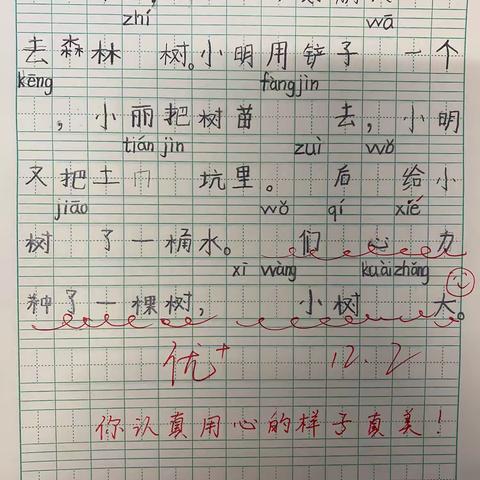 zhí wā
去森林 树。小明用铲子 一个
kēng fàngjìn
，小丽把树苗 去，小明
tiánjìn zuì wǒ
又把土 坑里。 后 给小
jiāo wǒ qí xié
树 了一桶水。 们 心 力
xī wàng kuàizhǎng
种了一棵树， 小树 大。
优+ 12.2
你认真用心的样子真美！